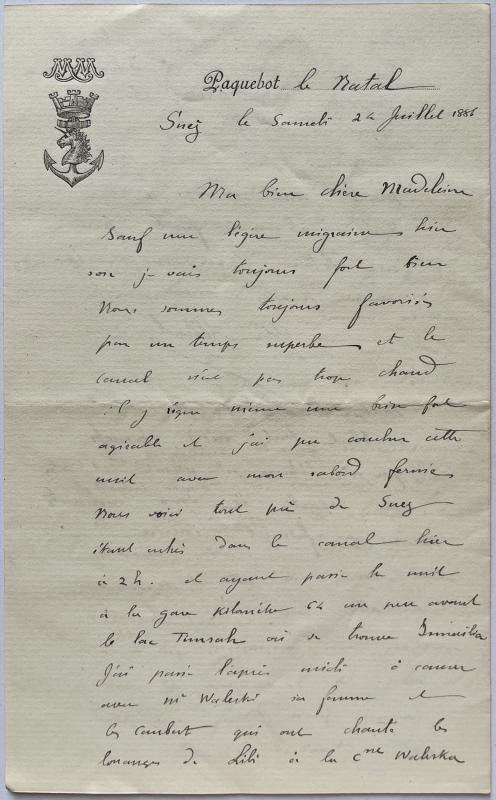 MM
Paquebot le Natal
Suez le Samedi 24 Juillet 1886
Ma bien chère Madeleine
Sauf une légère migraine hier
soir je vais toujours fort bien
Nous sommes toujours favorisés
par un temps superbe et le
canal n'est pas trop chaud
il y règne même une brise fort
agréable et j'ai pu coucher cette
nuit avec mon sabord fermé
Nous voici tout près de Suez
étant entrés dans le canal hier
à 2h. et ayant passé la nuit
à la gare kilomètre 64 un peu avant
le lac Timsah où se trouve Ismaïlia
J'ai passé l'après midi à causer
avec Mr Waleski sa femme et
les qui ont chanté les
louanges de Lili à la Ctesse